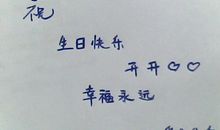 祝
生日快乐
开开♡♡
幸福永远